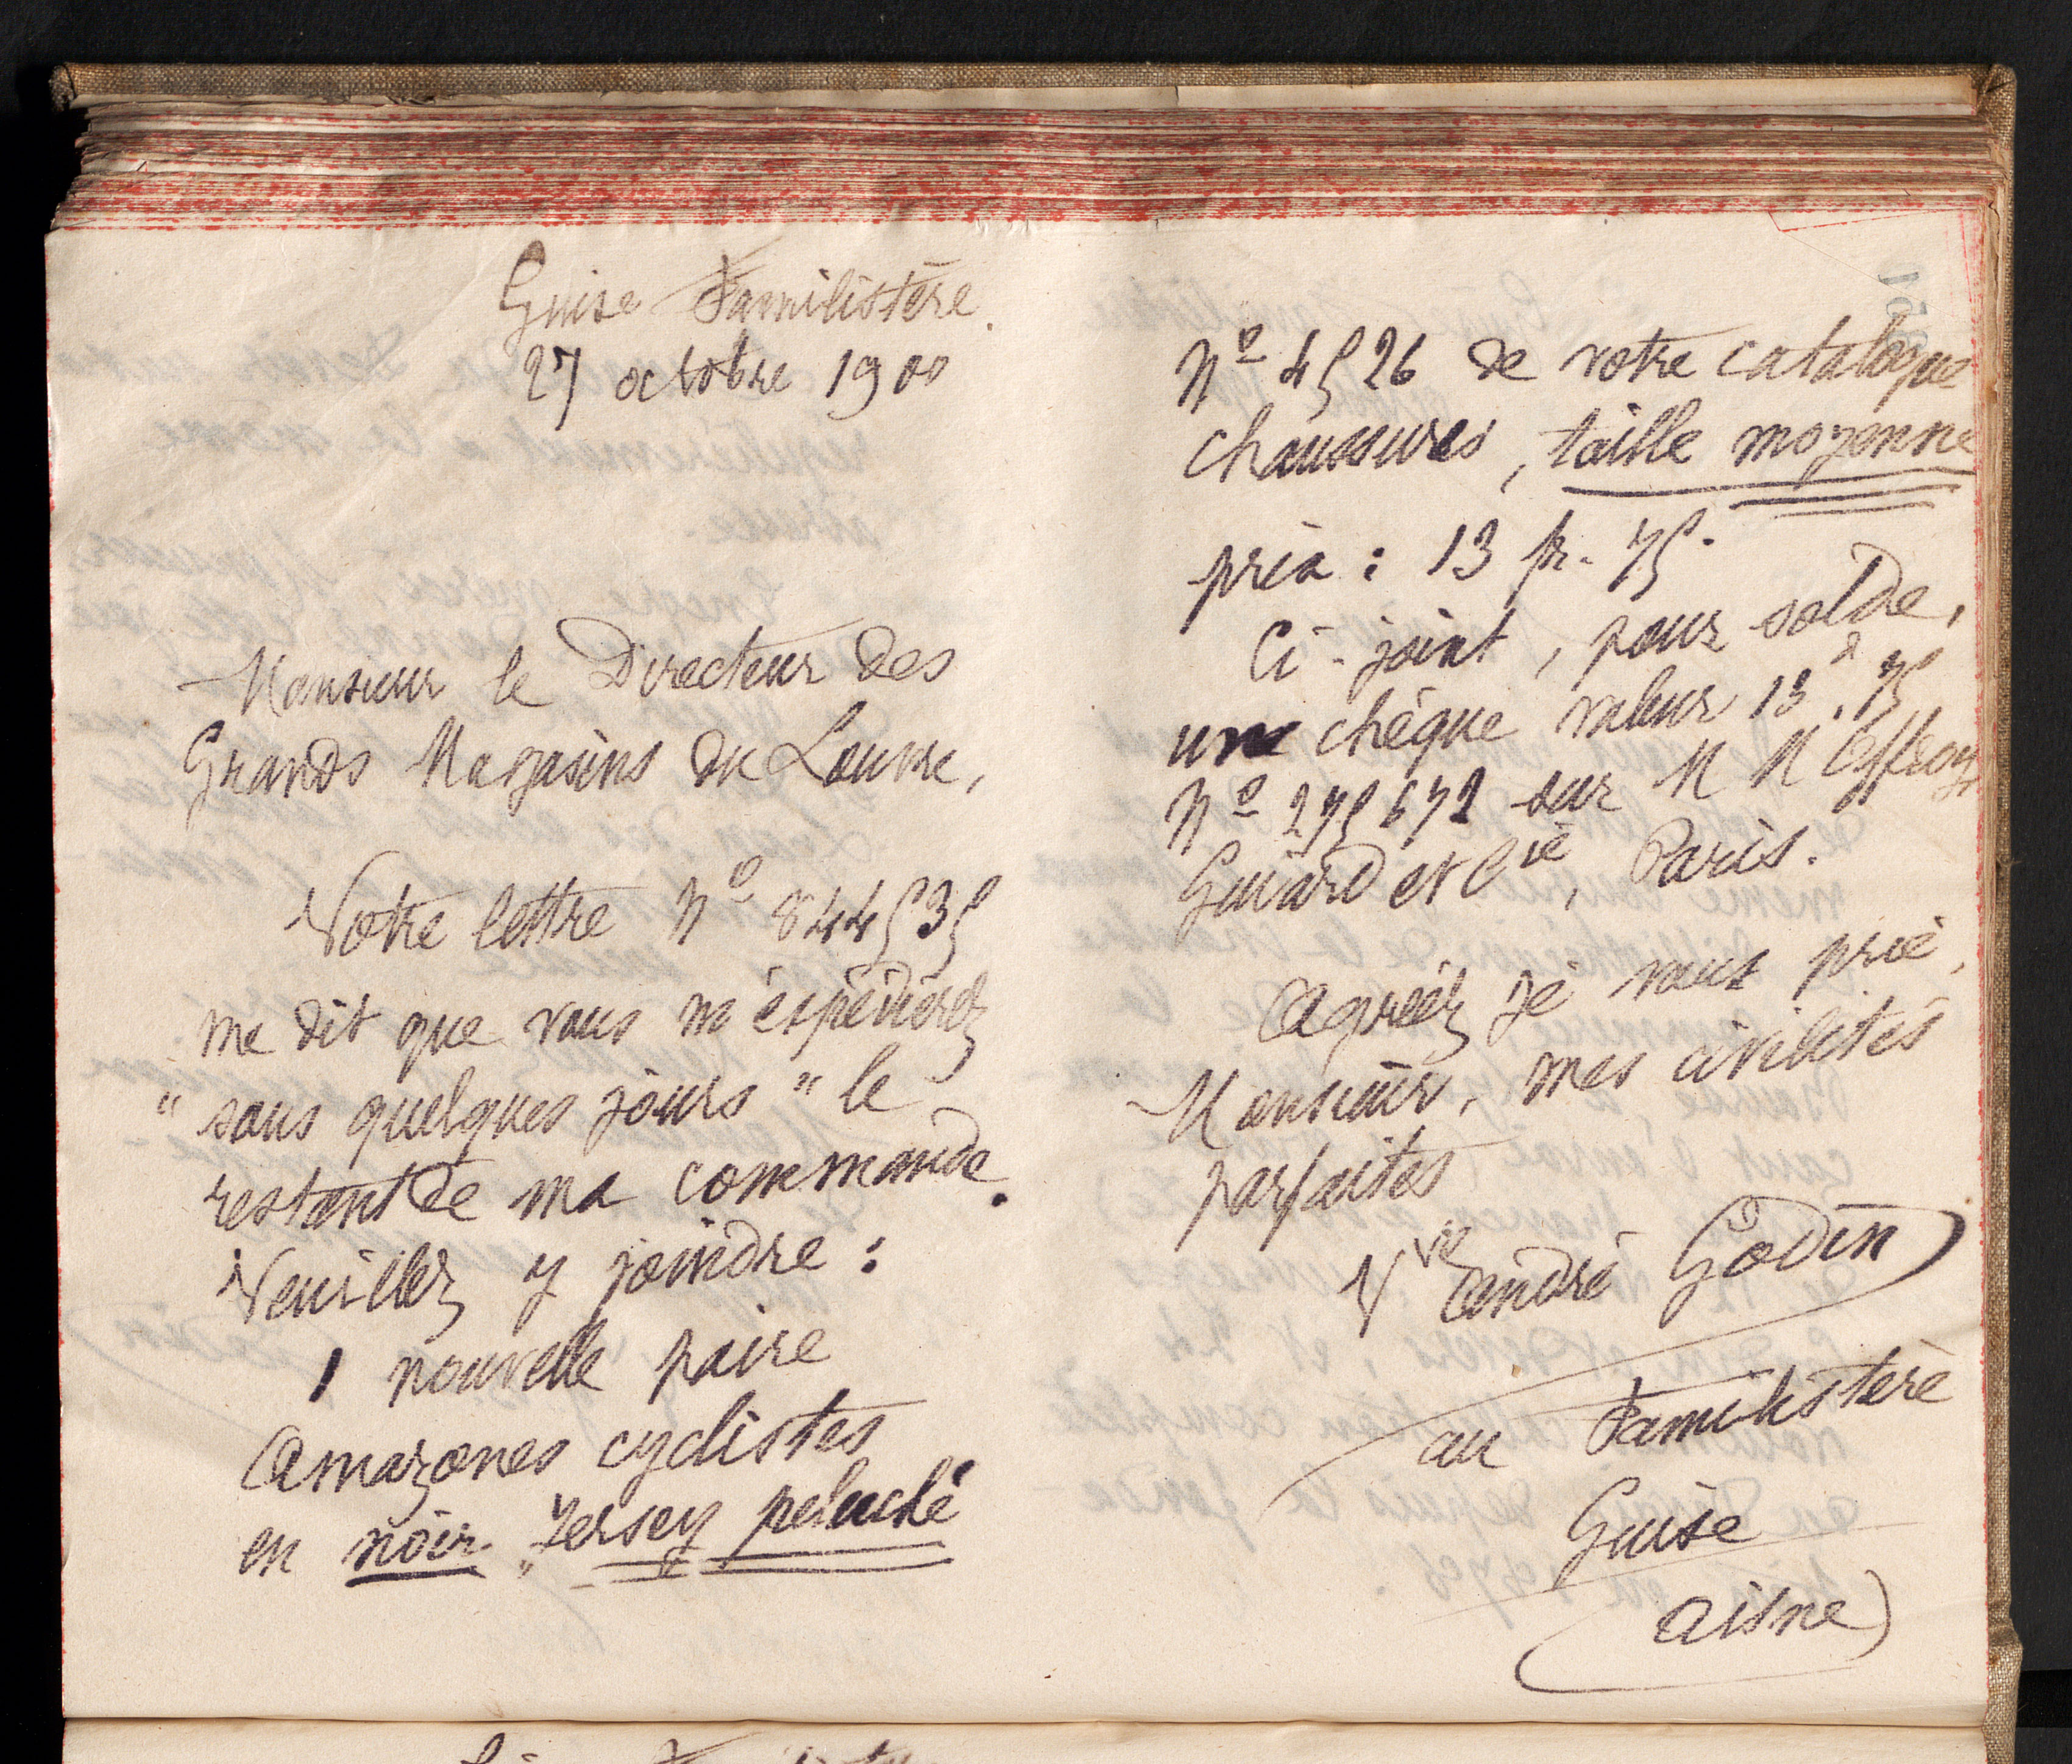 Guise Familistère.
27 octobre 1900
Monsieur le Directeur des
Grands Magasins du Louvre,
Votre lettre Nº 844535
me dit que vous m'expédierez
" sous quelques jours " le
restant de ma commande.
Veuillez y joindre :
1 nouvelle paire
Amazones cyclistes
en noir "Jersey peluché
Nº 4526 de votre catalogue
chaussures, taille moyenne
prix : 13 fr. 75.
Ci-joint, pour solde,
un chèque valeur 13f,75
Nº 275672 sur M M
Guiard et Cie, Paris.
Agréez je vous prie,
Monsieur, mes civilités
parfaites
Vve André Godin
au Familistère
Guise
(Aisne)